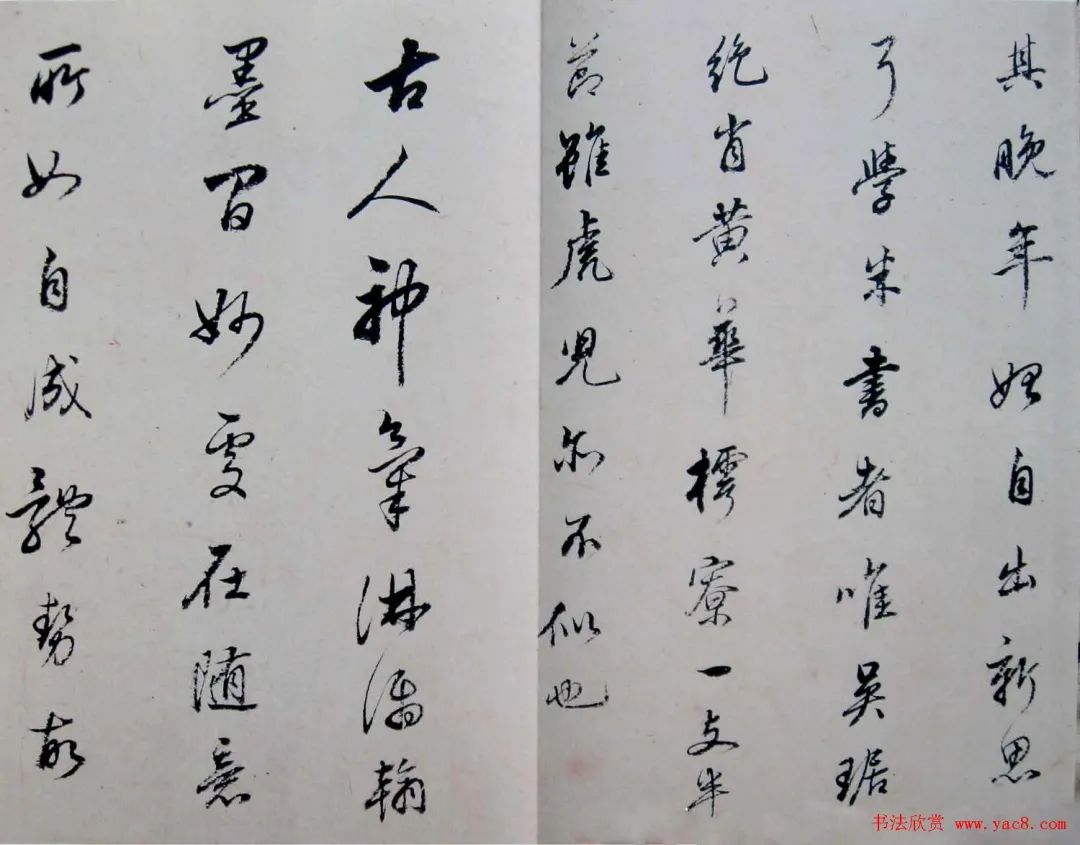 其晚年始自出新思
耳學米書者唯吳琚
絶肖黄華樗寮一支半
節雖虎兒亦不似也
古人神氣淋漓翰
墨間妙處在隨意
所如自成體勢故
书法欣赏 www.yac8.com